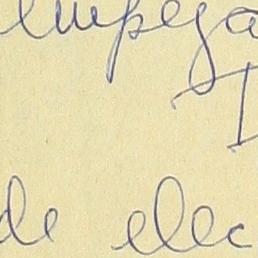 empega
I
de elec